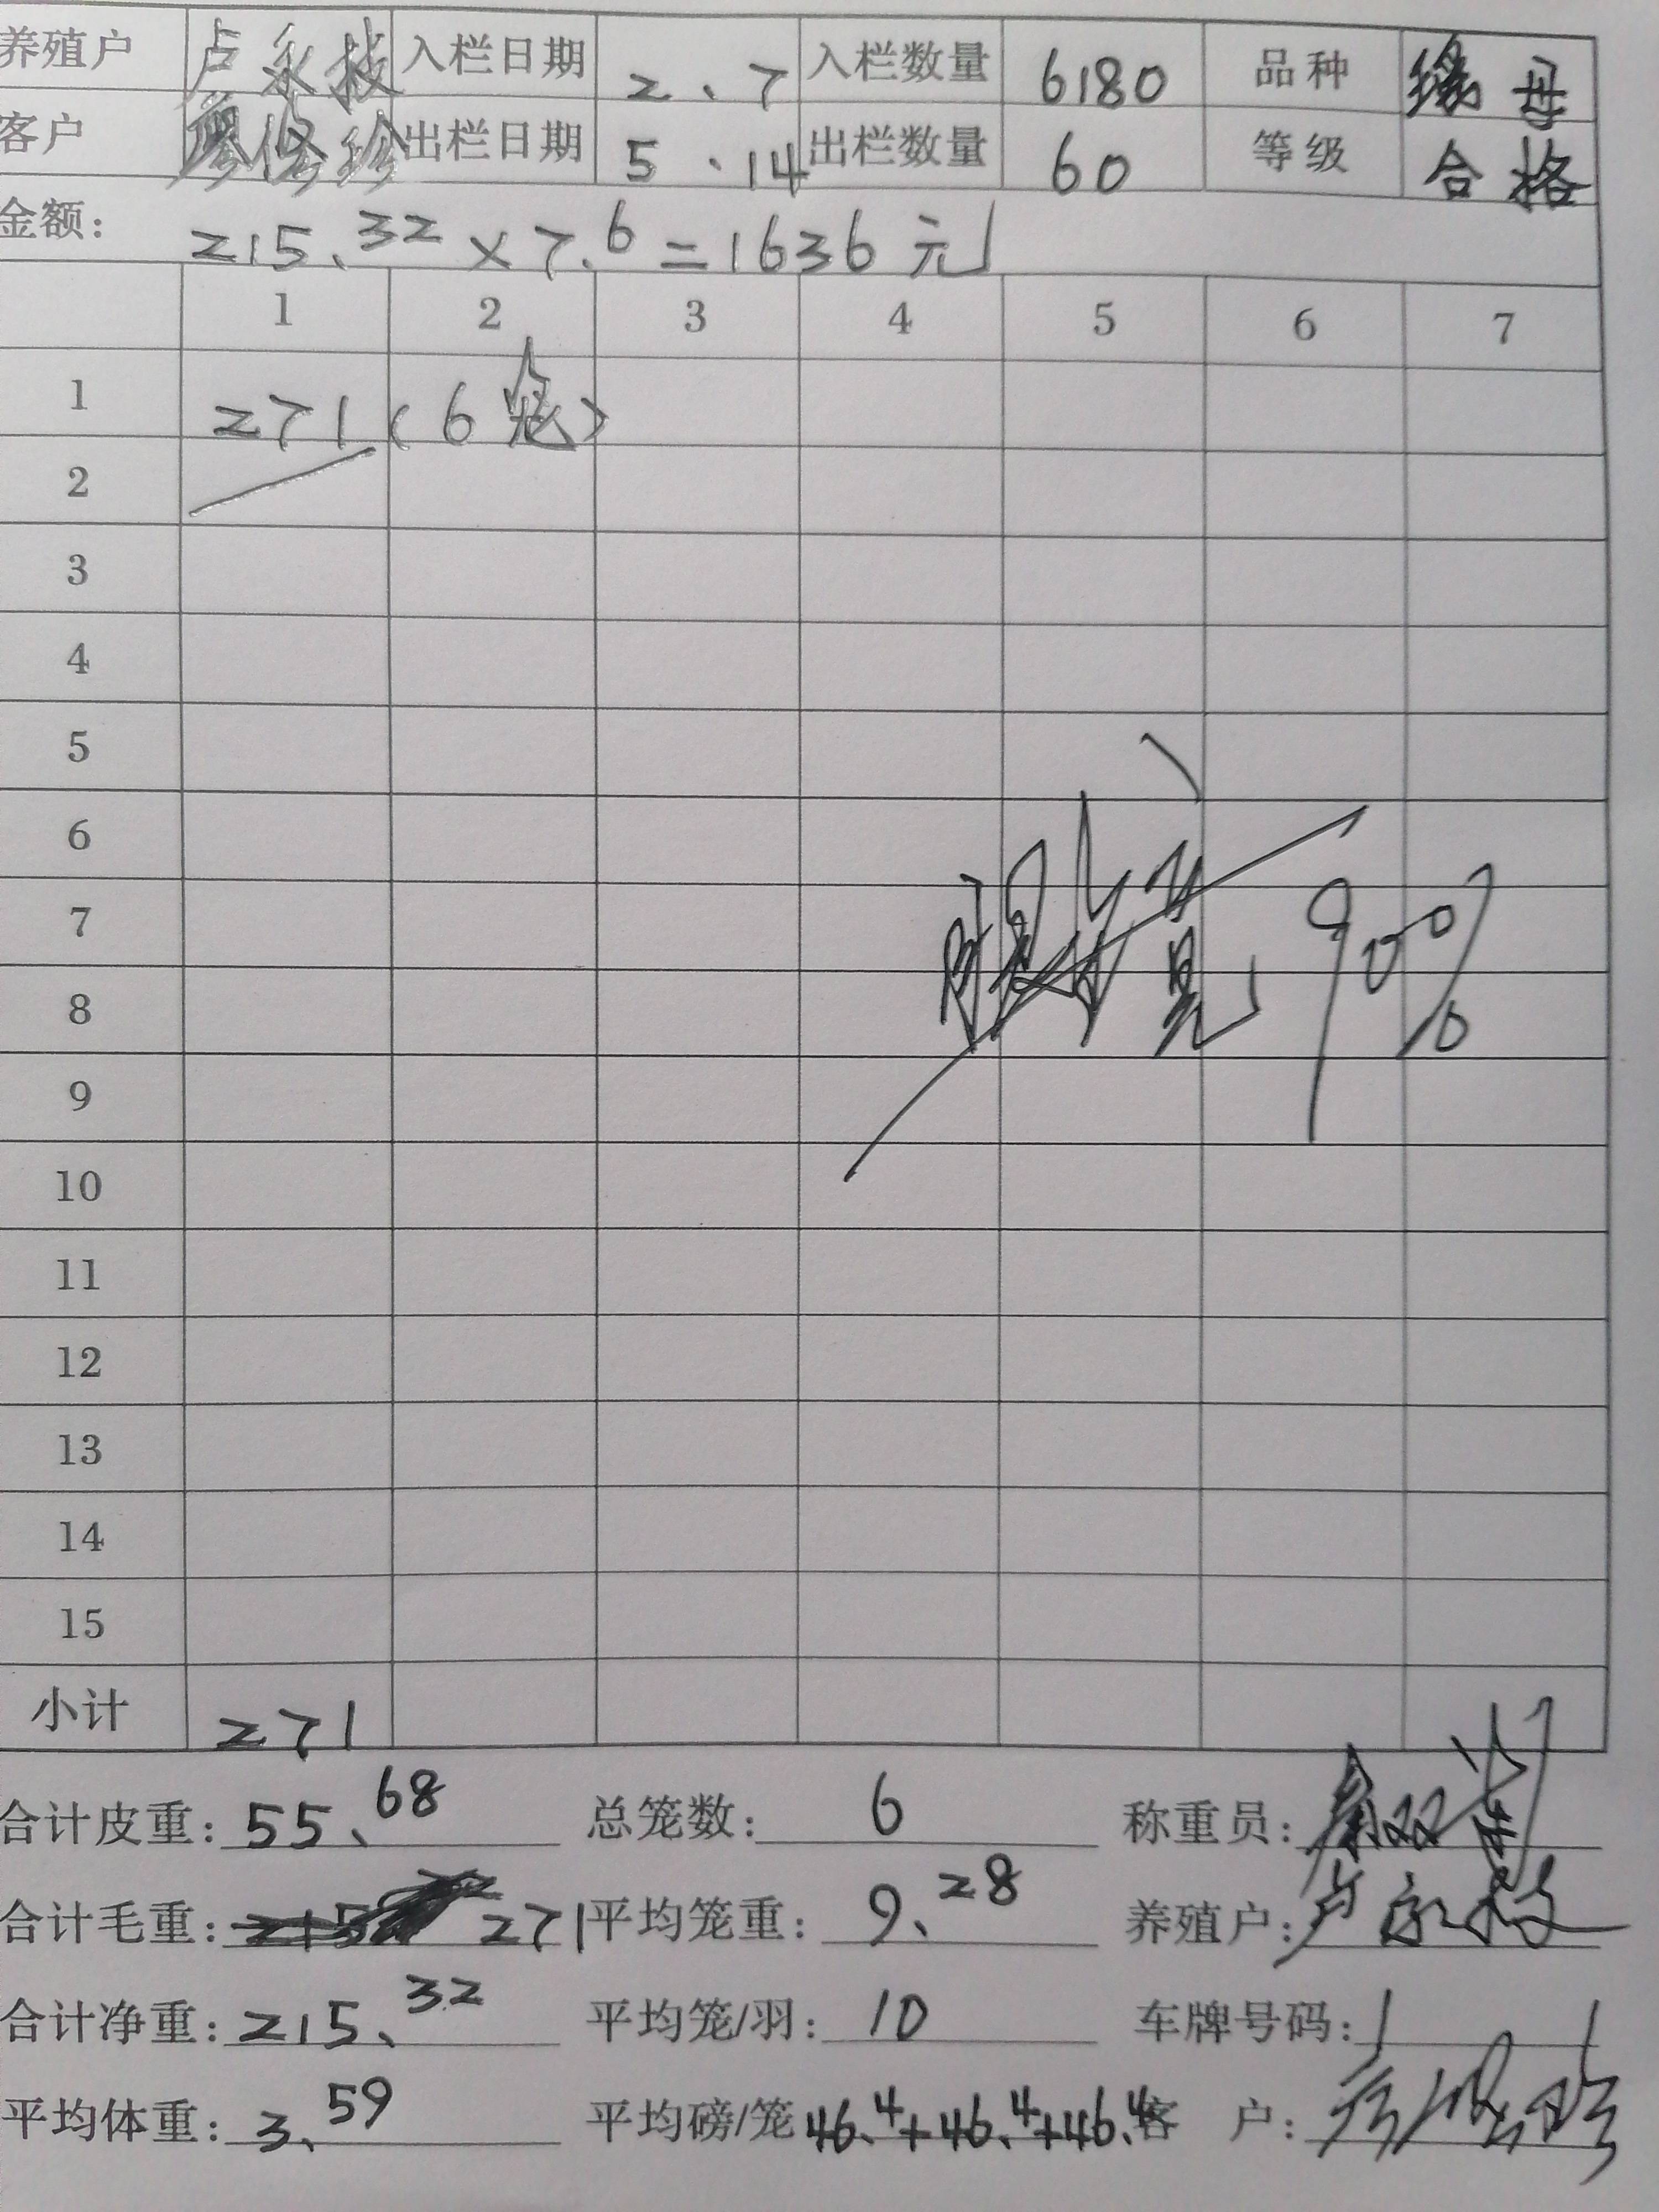 养殖户 卢永枝 入栏日期 2、7 入栏数量 6180 品种 母
客户 廖 珍 出栏日期 5、14 出栏数量 60 等级 合格
金额： 215、32×7.6=1636元
1 2 3 4 5 6 7
1 271（6笼）
2
3
4
5
6
7 90%
8
9
10
11
12
13
14
15
小计 271
合计皮重： 55、68 总笼数： 6 称重员： 双
合计毛重： 271 平均笼重： 9、28 养殖户： 卢永枝
合计净重： 215、32 平均笼/羽： 10 车牌号码：
平均体重： 3、59 平均磅/笼 46.4+46.4+46.4 客 户：